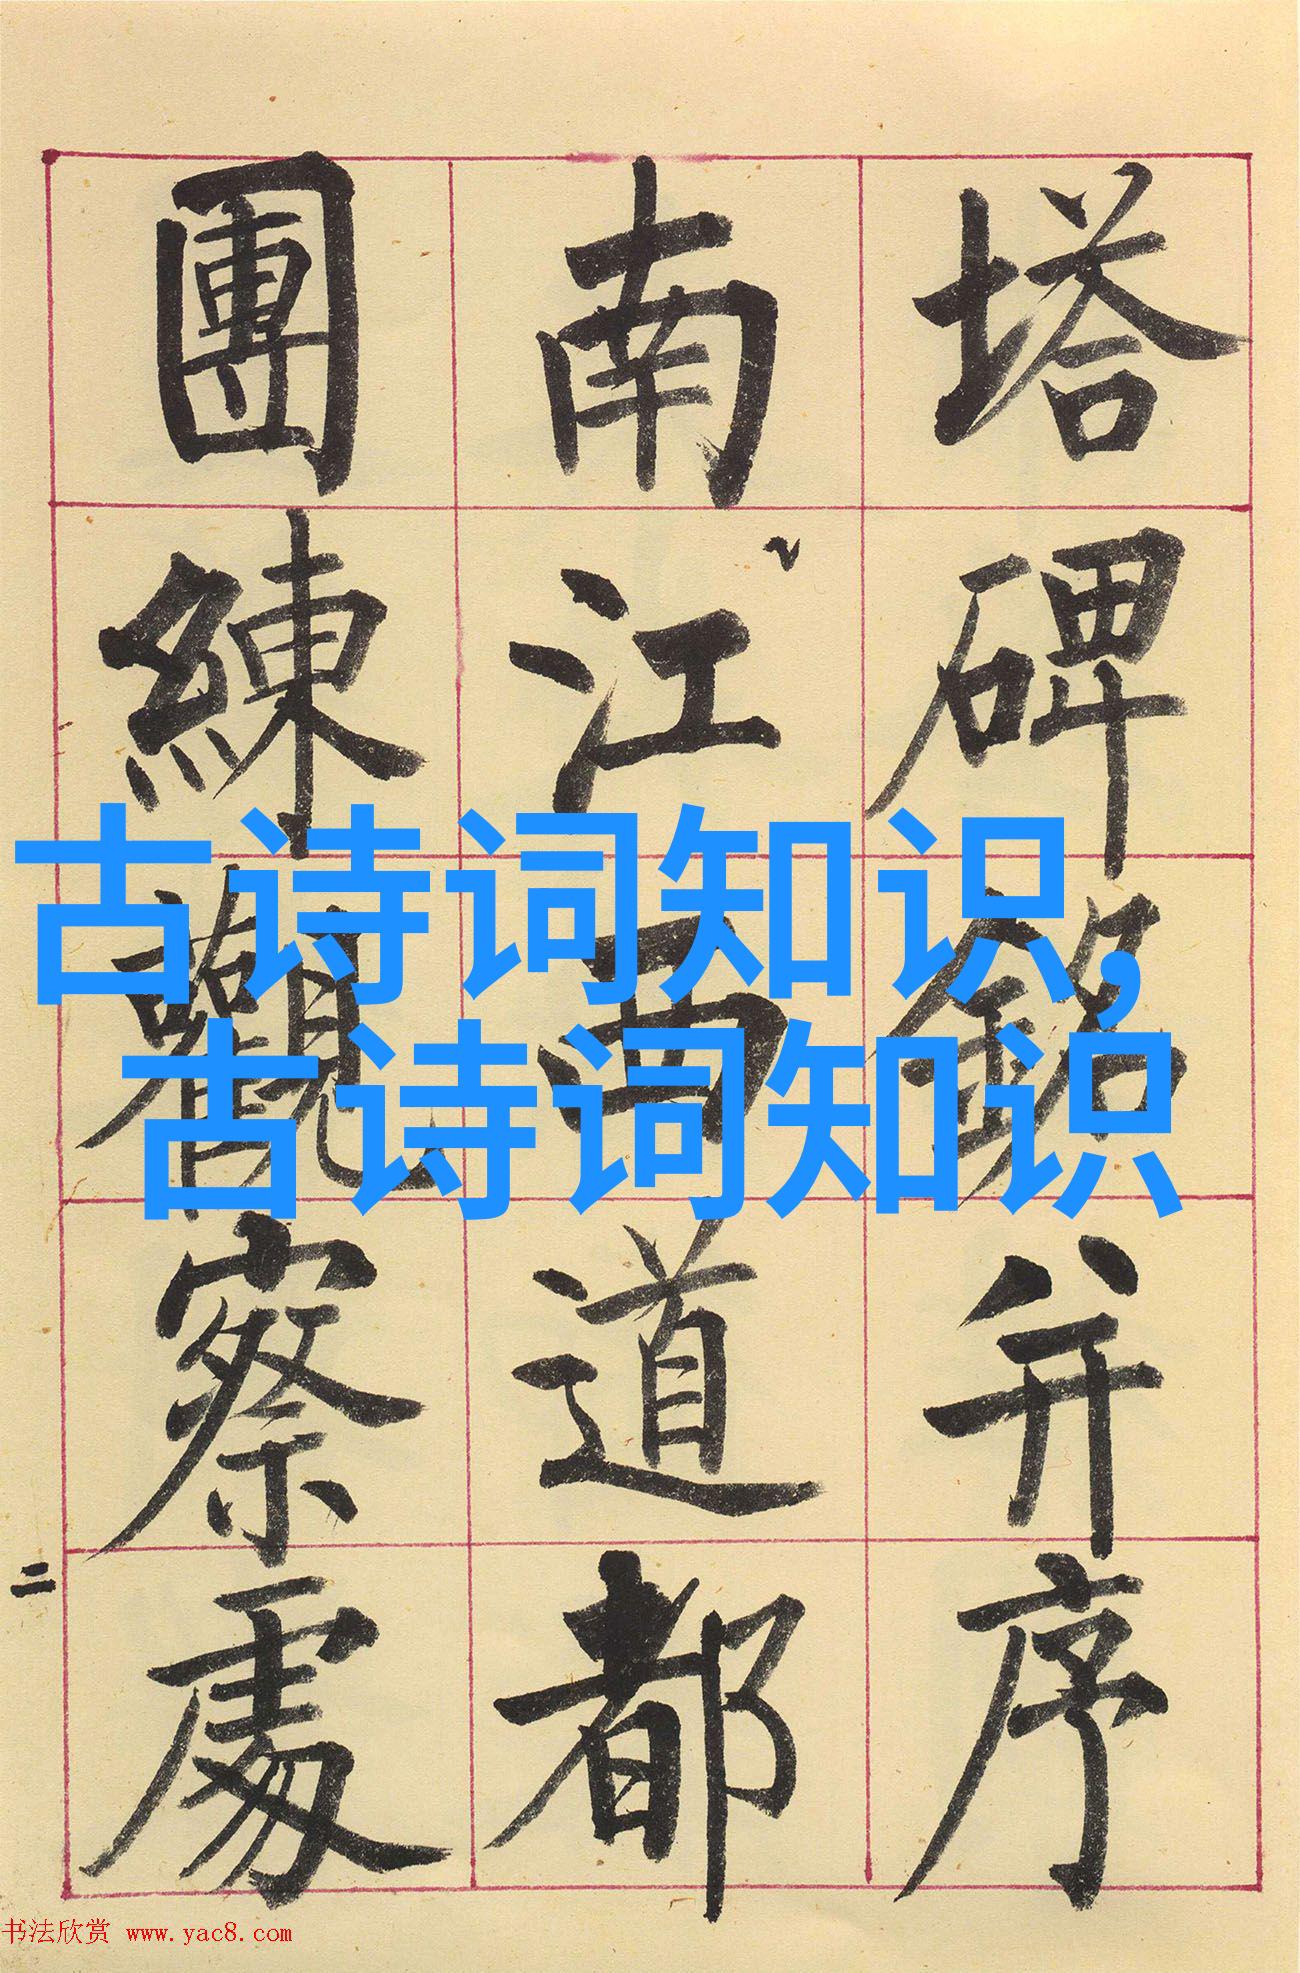 塔碑銘并序
南江西道都
團練觀察處
二
古诗词知识,
古诗词知识
书法欣赏 www.yac8.com